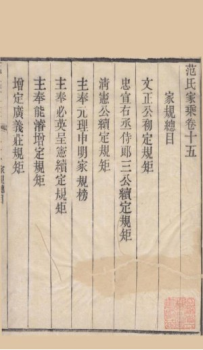 范氏家乘卷十五
家規總目
文正公初定規矩
忠宣右丞侍郎三公續定規矩
清憲公續定規矩
主奉元理申明家規榜
主奉必英呈憲續定規矩
主奉能濬增定規矩
增定廣義莊規矩